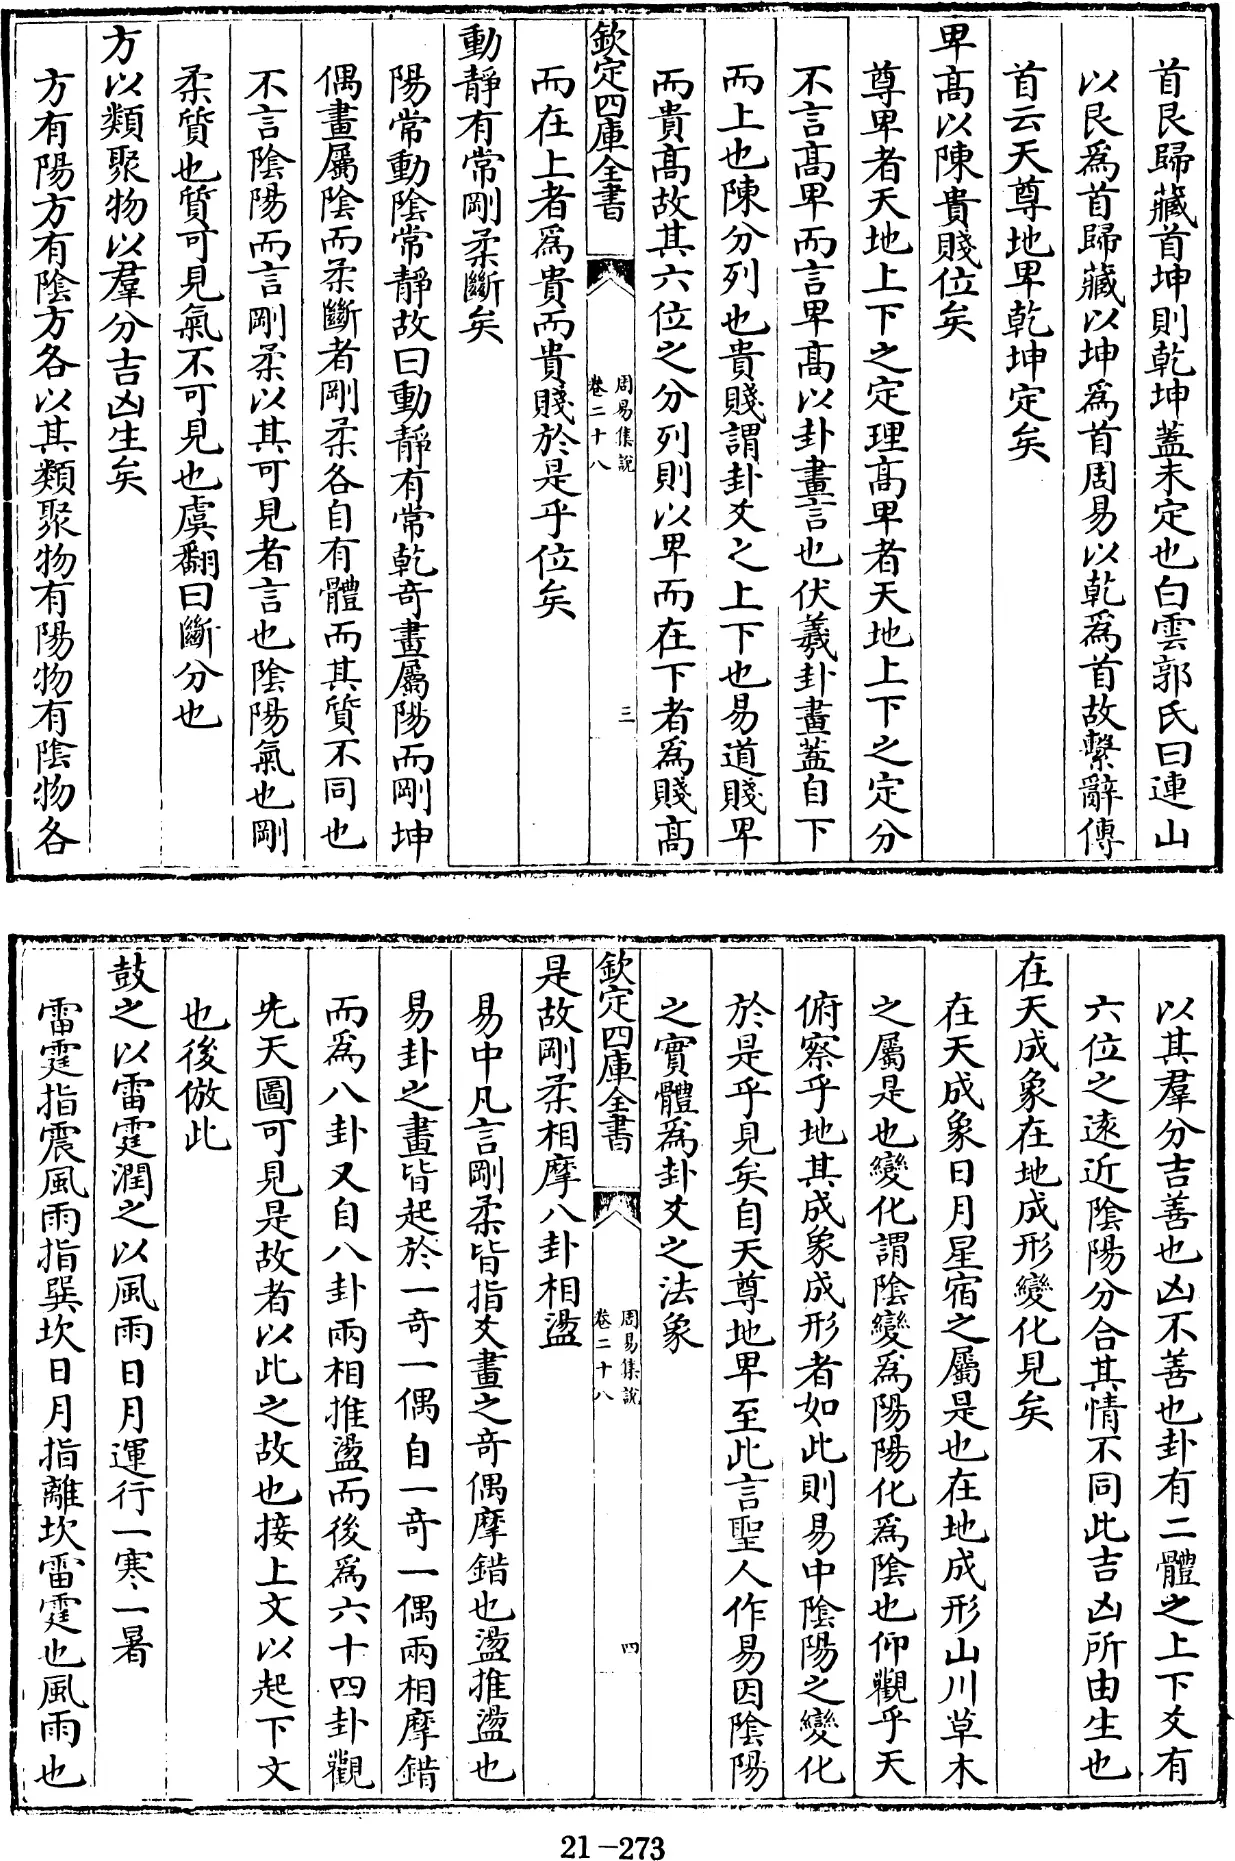 首艮歸藏首坤則乾坤蓋未定也白雲郭氏曰連山
以艮爲首歸藏以坤爲首周易以乾爲首故繫辭傳
首云天尊地卑乾坤定矣
卑高以陳貴賤位矣
尊卑者天地上下之定理高卑者天地上下之定分
不言高卑而言卑高以卦畫言也伏羲卦畫蓋自下
而上也陳分列也貴賤謂卦爻之上下也易道賤卑
而貴高故其六位之分列則以卑而在下者爲賤高
欽定四庫全書
周易集說
卷二十八
三
而在上者爲貴而貴賤於是乎位矣
動靜有常剛柔斷矣
陽常動陰常靜故曰動靜有常乾奇畫屬陽而剛坤
偶畫屬陰而柔斷者剛柔各自有體而其質不同也
不言陰陽而言剛柔以其可見者言也陰陽氣也剛
柔質也質可見氣不可見也虞翻曰斷分也
方以類聚物以羣分吉凶生矣
方有陽方有陰方各以其類聚物有陽物有陰物各
以其羣分吉善也凶不善也卦有二體之上下爻有
六位之遠近陰陽分合其情不同此吉凶所由生也
在天成象在地成形變化見矣
在天成象日月星宿之屬是也在地成形山川草木
之屬是也變化謂陰變爲陽陽化爲陰也仰觀乎天
俯察乎地其成象成形者如此則易中陰陽之變化
於是乎見矣自天尊地卑至此言聖人作易因陰陽
之實體爲卦爻之法象
欽定四庫全書
周易集說
卷二十八
四
是故剛柔相摩八卦相盪
易中凡言剛柔皆指爻畫之奇偶摩錯也盪推盪也
易卦之畫皆起於一奇一偶自一奇一偶兩相摩錯
而爲八卦又自八卦兩相推盪而後爲六十四卦觀
先天圖可見是故者以此之故也接上文以起下文
也後倣此
鼓之以雷霆潤之以風雨日月運行一寒一暑
雷霆指震風雨指巽坎日月指離坎雷霆也風雨也
21-273